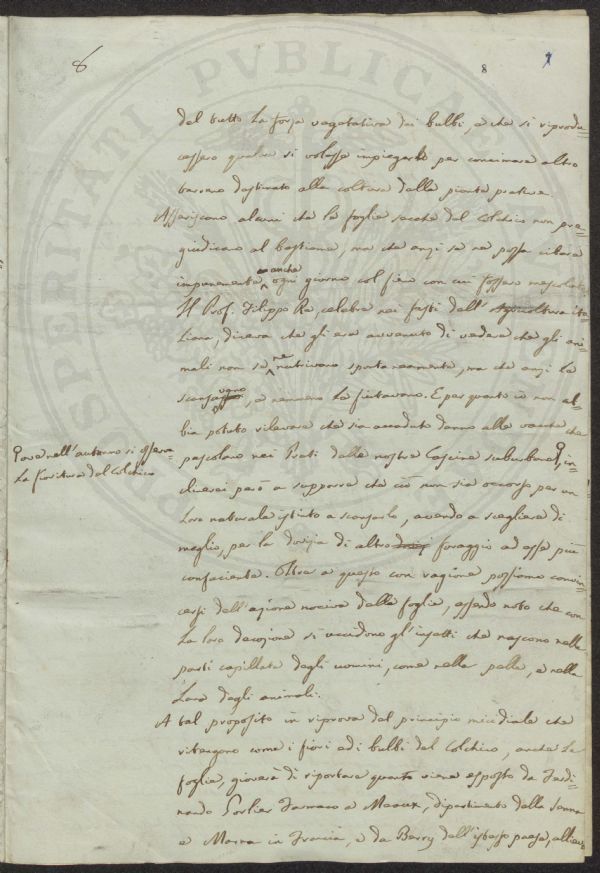 8
8
del tutto la forza vegetativa dei bulbi, e che si riprodu=
cessero qualora si volesse impiegarli per concimare altro
terreno destinato alla coltura delle piante prative.
Asseriscono alcuni che le foglie secche del Colchico non pre=
giudicano al bestiame, ma che anzi se ne possa cibare
impunemente anche ogni giorno col fieno con cui fossero mescolate
Il Prof. Filippo Re, celebre nei fasti dell'Agricoltura ita=
liana, diceva che gli era avvenuto di vedere che gli ani=
mali non se ne nutrivano spontaneamente, ma che anzi lo
scansavano, e nemmeno la fiutavano. E per quanto io non ab=
bia potuto rilevare che sia accaduto danno alle vacche che
pascolano nei Prati delle nostre Cascine suburbane, in=
ove nell'autunno si osserva
la fioritura del Colchico
clinerei però a supporre che ciò non sia occorso per un
loro naturale istinto a scansarlo, avendo a scegliere di
meglio, per la dovizia di altro foraggio ad esse più
confaciente. Oltre a questo con ragione possiamo convin=
cersi dell'azione nociva delle foglie, essendo noto che con
la loro decozione si uccidono gl'insetti che nascono nelle
parti capillate degli uomini, come nella pelle, e nella
lana degli animali.
A tal proposito in riprova del principio micidiale che
ritengono come i fiori ed i bulbi del Colchico, anche le
foglie, gioverà di riportare quanto viene esposto da Ferdi=
nando Farmaco a Meaux, dipartimento della Senna
e Marna in Francia, e da Berry dell'istesso paese,
PROSPERITATI PVBLICAE